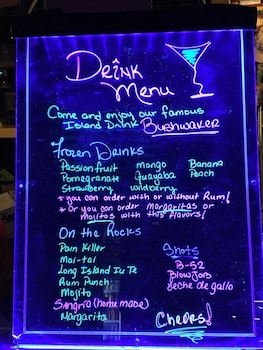 Drink
Menu
Come and enjoy our famous
Island Drink Bushwaker
Frozen Drinks
Passionfruit mango Banana
Pomegranate Guayaba Peach
Strawberry wildberry
* you can order with or without Rum!
* Or you can order Margaritas or
Mojitos with this flavors!
On the Rocks
Pain Killer
Mai-tai
Long Island Ice Te
Rum Punch
Mojito
Sangria (home made)
Margarita
Shots
B-52
Blow Jobs
leche de gallo
Cheers!